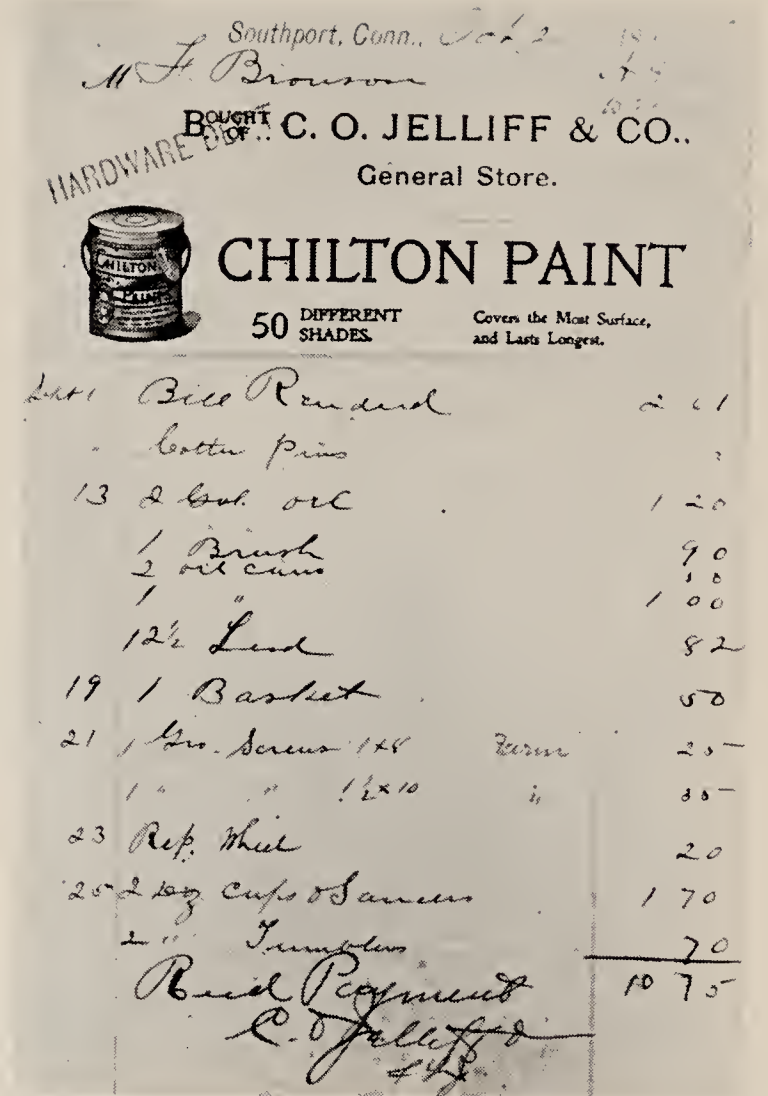 Southport, Conn., Oct 2
M F. Bronson
BOUGHT OF.. C. O. JELLIFF & CO..
HARDWARE DEPT.
General Store.
CHILTON PAINT
CHILTON
PAINT
50 DIFFERENT SHADES.
Covers the Most Surface, and Lasts Longest.
Bill Rendered 2
" Cotter pins
13 2 Gal. oil 1 20
1 Brush 90
2 oil cans
1 " 1 00
12½ Lead 82
19 1 Basket 50
21 1 Gro. Screws 1x8 Farm 25
1 " " 1½x10 " 35
23 Rep. Wheel 20
25 2 doz Cups & Saucers 1 70
2 " Tumblers 70
10 75
Recd Payment
C. O. Jelliff & Co